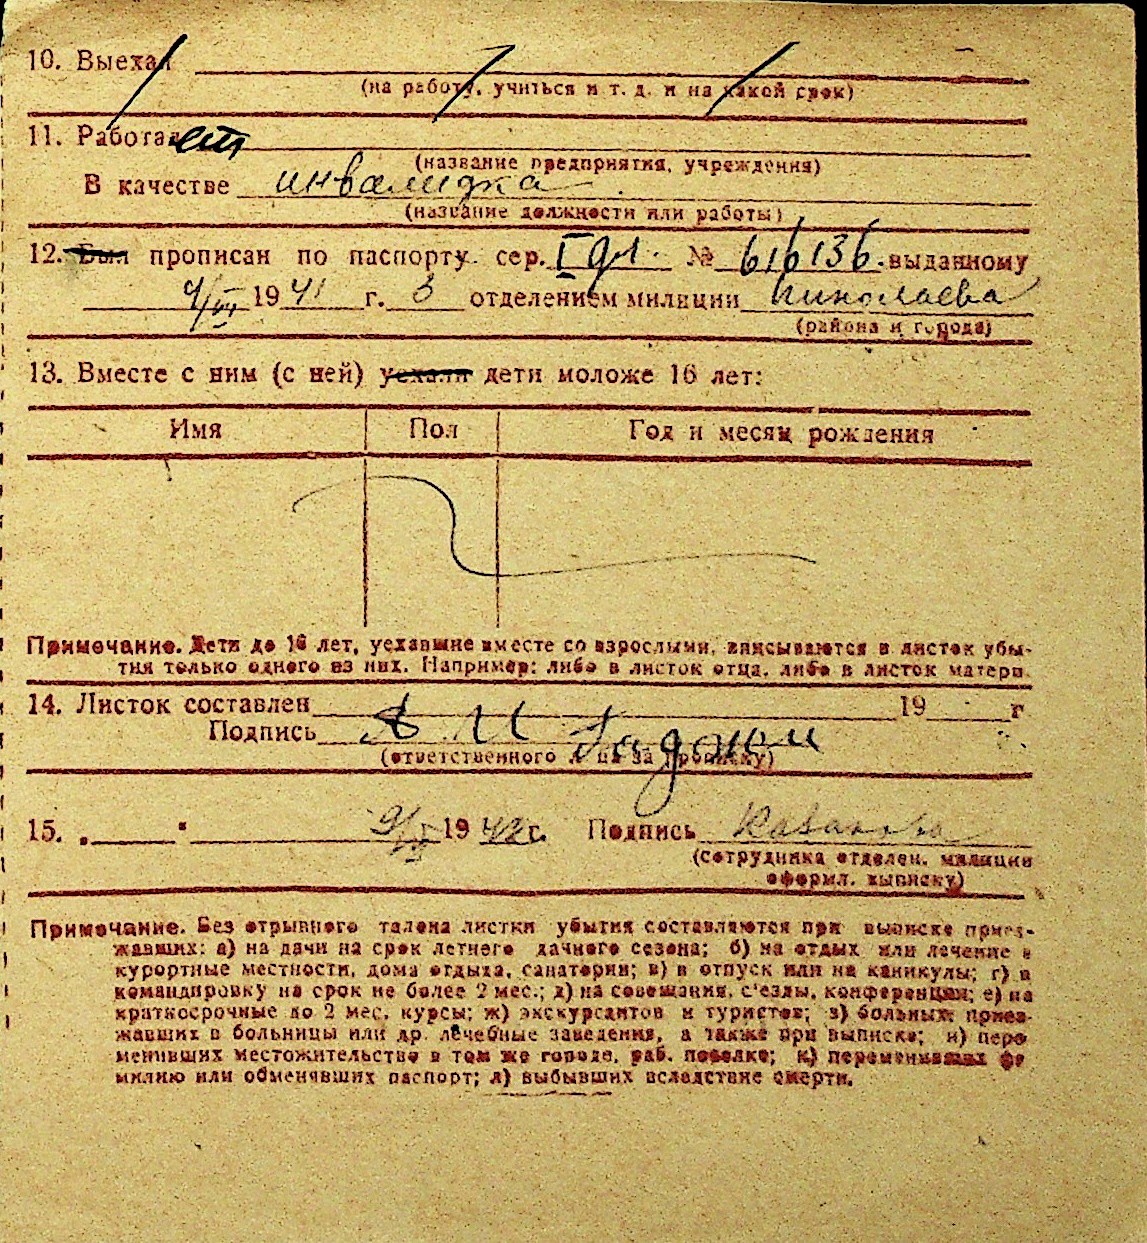 10. Выехал
(на работу, учиться и т. д. и на какой срок)
11. Работает
(название предприятия, учреждения)
В качестве инвалидка
(название должности или работы)
12. Был прописан по паспорту сер. I № 616136 выданному
4/III 1941 г. 3 отделением милиции Николаева
(района и города)
13. Вместе с ним (с ней) уехали дети моложе 16 лет:
Имя Пол Год и месяц рождения
Примечание. Дети до 16 лет, уехавшие вместе со взрослыми, вписываются в листок убы-
тия только одного из них. Например: либо в листок отца, либо в листок матери.
14. Листок составлен 19 г
Подпись А И
(ответственного лица за прописку)
15. „ " 9/IX 1942 г. Подпись
(сотрудника отделен. милиции
оформл. выписку)
Примечание. Без отрывного талона листки убытия составляются при выписке приез-
жавших: а) на дачи на срок летнего дачного сезона; б) на отдых или лечение в
курортные местности, дома отдыха, санатории; в) в отпуск или на каникулы; г) в
командировку на срок не более 2 мес.; д) на совещания, с'езды, конференции; е) на
краткосрочные до 2 мес. курсы; ж) экскурсантов и туристов; з) больных приез-
жавших в больницы или др. лечебные заведения, а также при выписке; и) пере
менивших местожительство в том же городе, раб. поселке; к) переменивших фа
милию или обменявших паспорт; л) выбывших вследствие смерти.